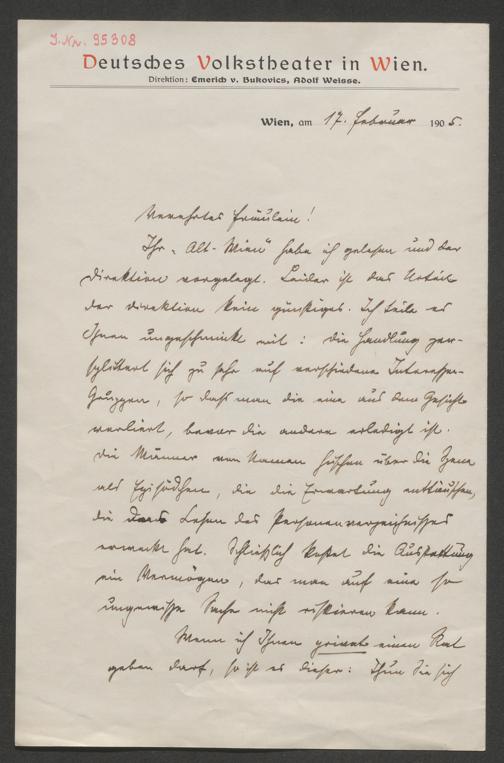 J.Nr. 95308
Deutsches Volkstheater in Wien.
Direktion: Emerich v. Bukovics, Adolf Weisse.
Wien, am 17. Februar 1905.
Verehrtes Fräulein!
Ihr „Alt-Wien" habe ich gelesen und der
Direktion vorgelegt. Leider ist das Urteil
der Direktion kein günstiges. Ich teile es
Ihnen ungeschminkt mit: die Handlung zer-
splittert sich zu sehr auf verschiedene Interessen-
Gruppen, so daß man die eine aus dem Gesicht
verliert, bevor die andere erledigt ist.
Die Männer von Namen huschen über die Szene
als Episödchen, die die Erwartung enttäuschen,
die das Lesen des Personenverzeichnisses
erweckt hat. Schließlich kostet die Ausstattung
ein Vermögen, das man auf eine so
ungewisse Sache nicht riskieren kann.
Wenn ich Ihnen privat einen Rat
geben darf, so ist es dieser: Thun Sie sich